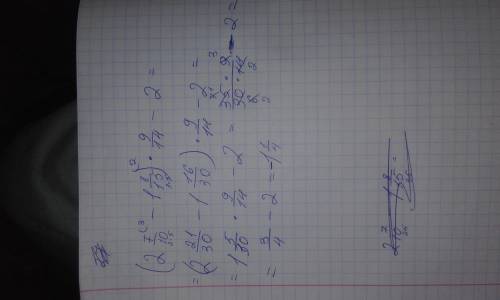 (2 7/10 - 1 8/15) · 9/14 - 2 =
= (2 21/30 - 1 16/30) · 9/14 - 2 =
= 1 5/30 · 9/14 - 2 = 35 · 9 / 30 · 14 - 2 =
= 3/4 - 2 = -1 1/4